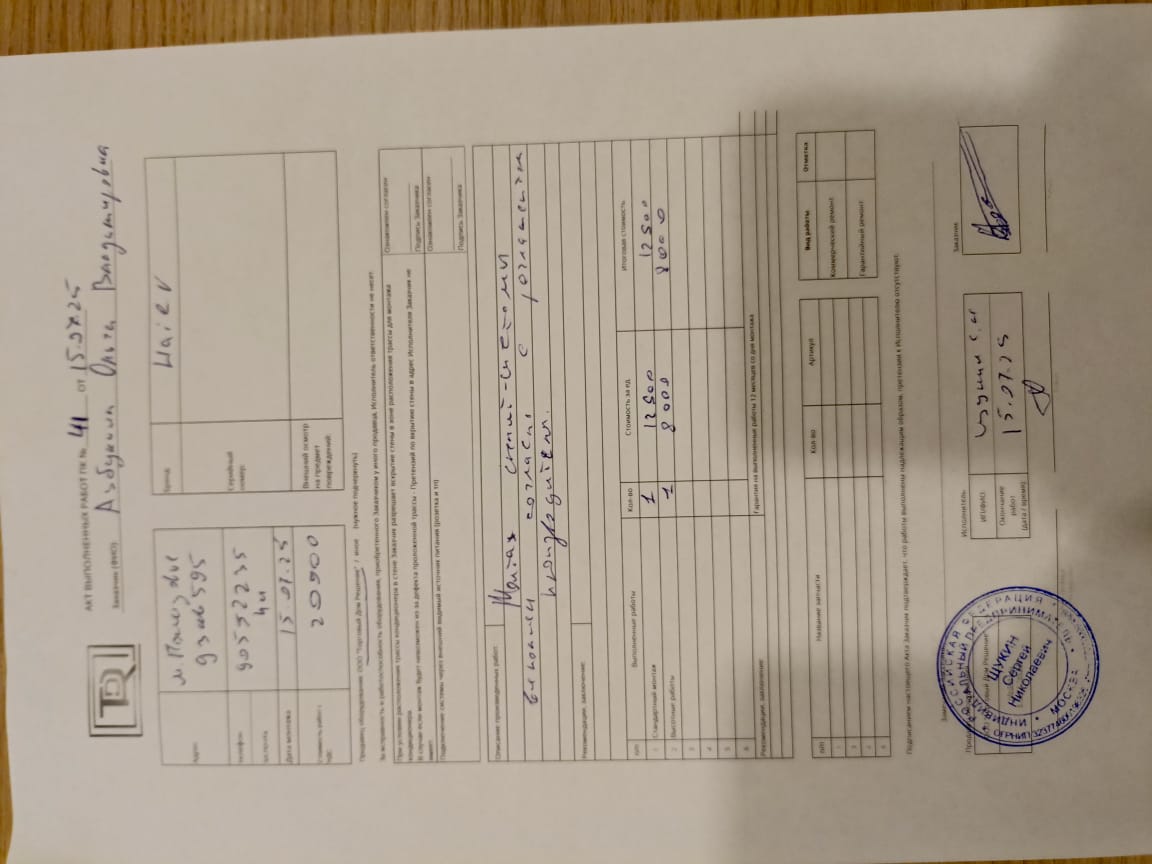 TDR
АКТ ВЫПОЛНЕННЫХ РАБОТ ПК № 41 ОТ 15.07.25
Заказчик (ФИО) Ольга Владимировна
Адрес
телефон 9055 2235
Дата монтажа 15.07.25
Стоимость работ с НДС
Бренд Haier
Серийный номер
Внешний осмотр на предмет повреждений
Продавец оборудования: ООО "Торговый Дом Решение" / иное (нужное подчеркнуть)
За исправность и работоспособность оборудования, приобретенного Заказчиком у иного продавца, Исполнитель ответственности не несет.
При условии расположения трассы кондиционера в стене Заказчик разрешает вскрытие стены в зоне расположения трассы для монтажа кондиционера.
Ознакомлен согласен
Подпись Заказчика
В случае если монтаж будет невозможен из-за дефекта проложенной трассы - Претензий по вскрытию стены в адрес Исполнителя Заказчик не имеет.
Ознакомлен согласен
Подключение системы через внешний видимый источник питания (розетка и тп)
Подпись Заказчика
Описание произведенных работ: Монтаж сплит-системы
выполнен согласно, с
Рекомендации, заключение:
п/п Выполненные работы Кол-во Стоимость за ед. Итоговая стоимость
1 Стандартный монтаж 1 12500 12500
2 Высотные работы 1 8000 8000
3
4
5
6
Рекомендации, заключение: Гарантия на выполненные работы 12 месяцев со дня монтажа
п/п Название запчасти Кол-во Артикул
Вид работы Отметка
Коммерческий ремонт
Гарантийный ремонт
Подписанием настоящего Акта Заказчик подтверждает, что работы выполнены надлежащим образом, претензии к Исполнителю отсутствуют.
Исполнитель
ИП(ФИО) Щукин С.Н
Окончание работ (дата / время) 15.07.25
Заказчик
РОССИЙСКАЯ ФЕДЕРАЦИЯ
ИНДИВИДУАЛЬНЫЙ ПРЕДПРИНИМАТЕЛЬ
ЩУКИН
Сергей
Николаевич
МОСКВА
ОГРНИП